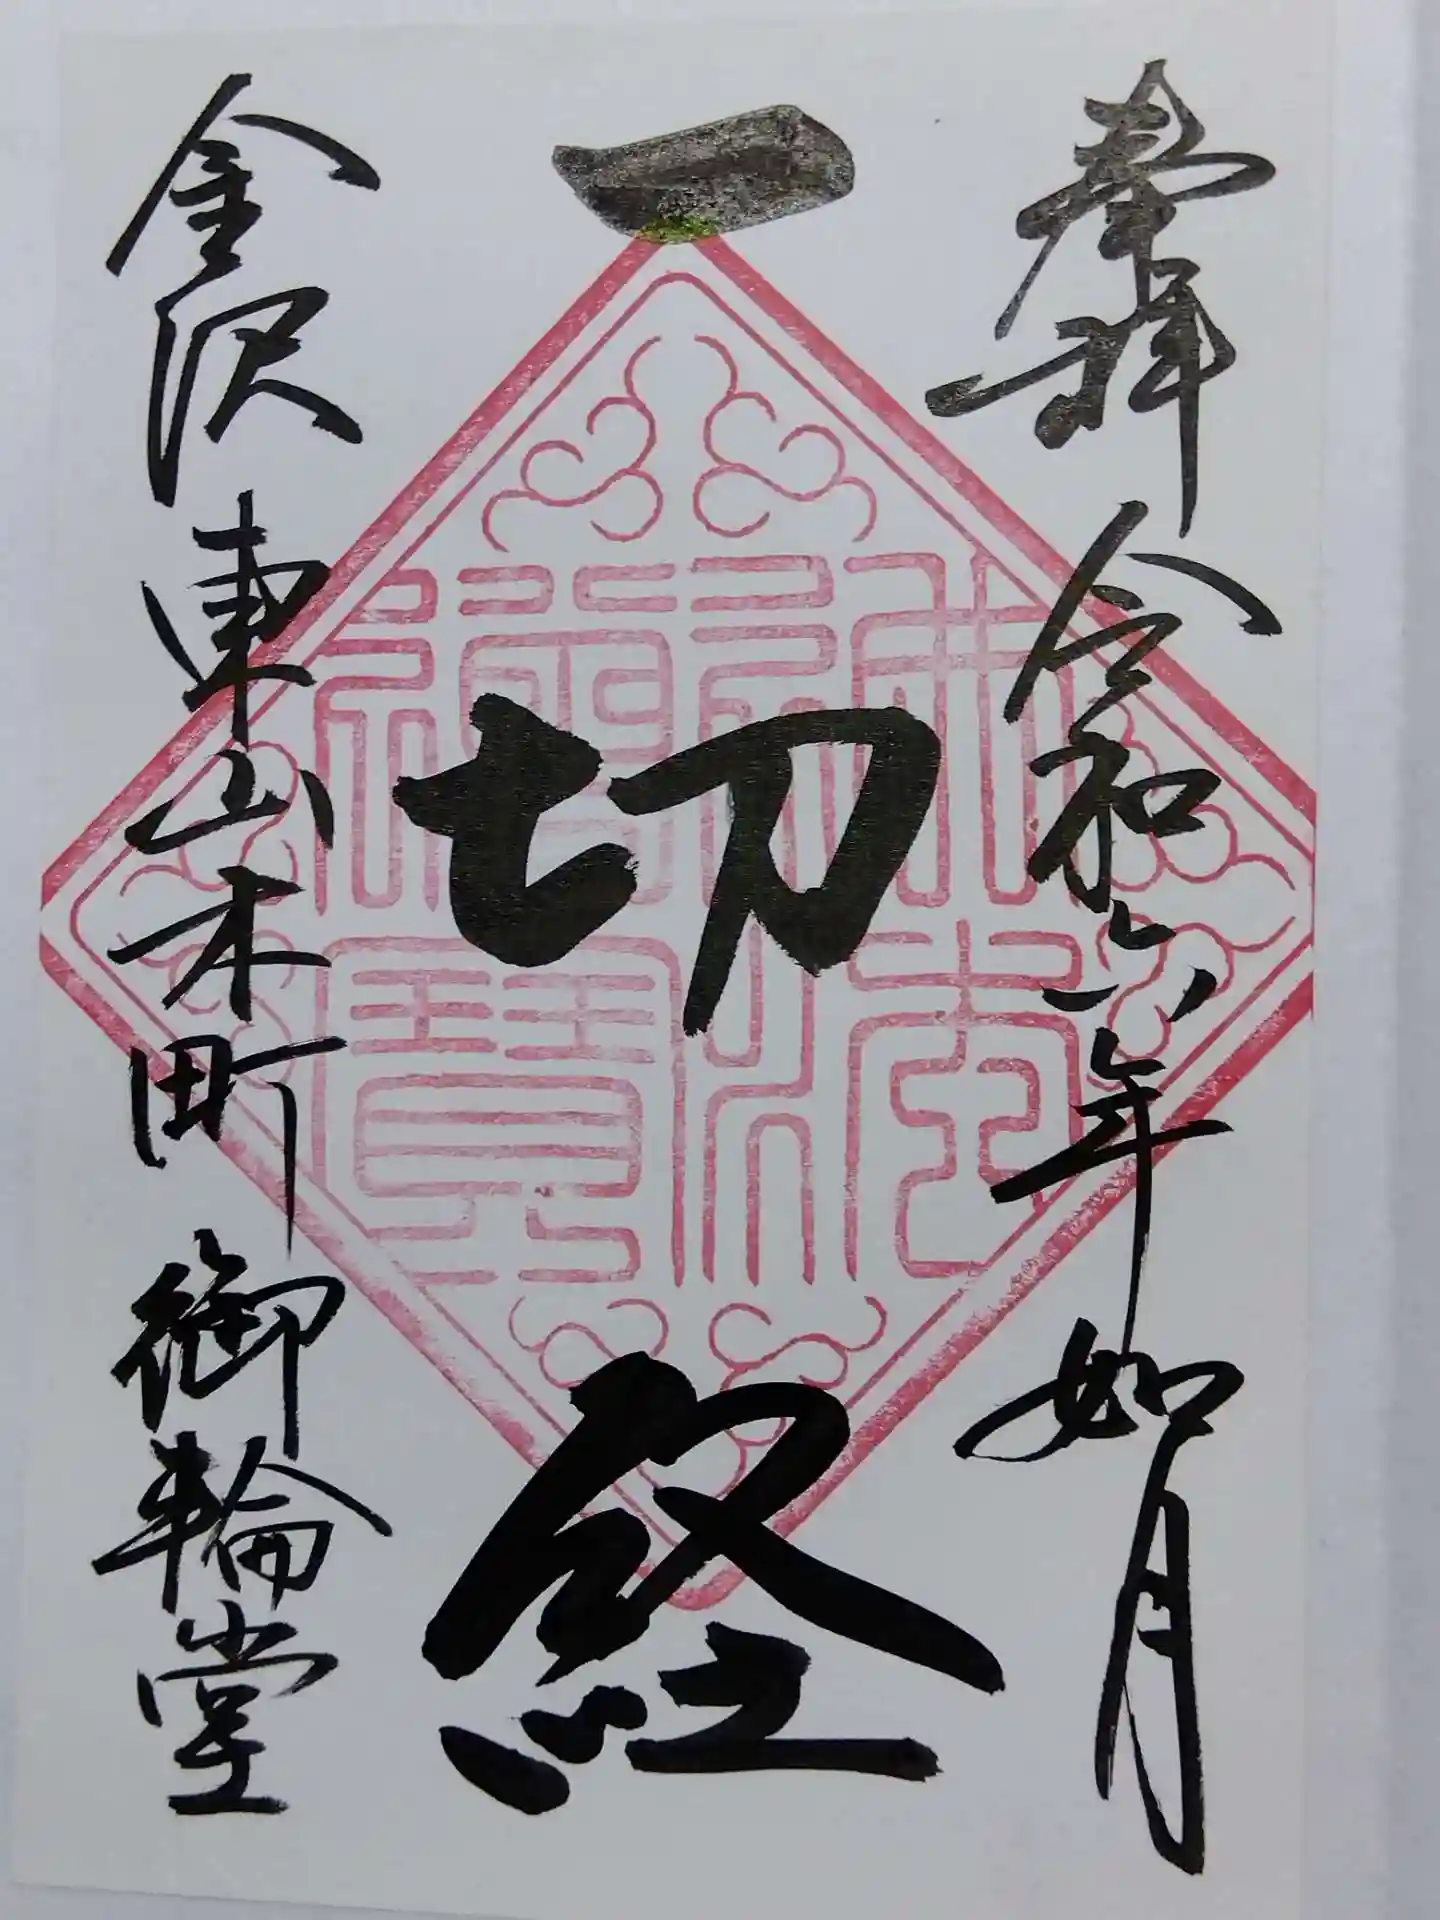 奉拝 令和六年 如月
一切経
佛法僧寶
金沢 東山木町 御輪堂